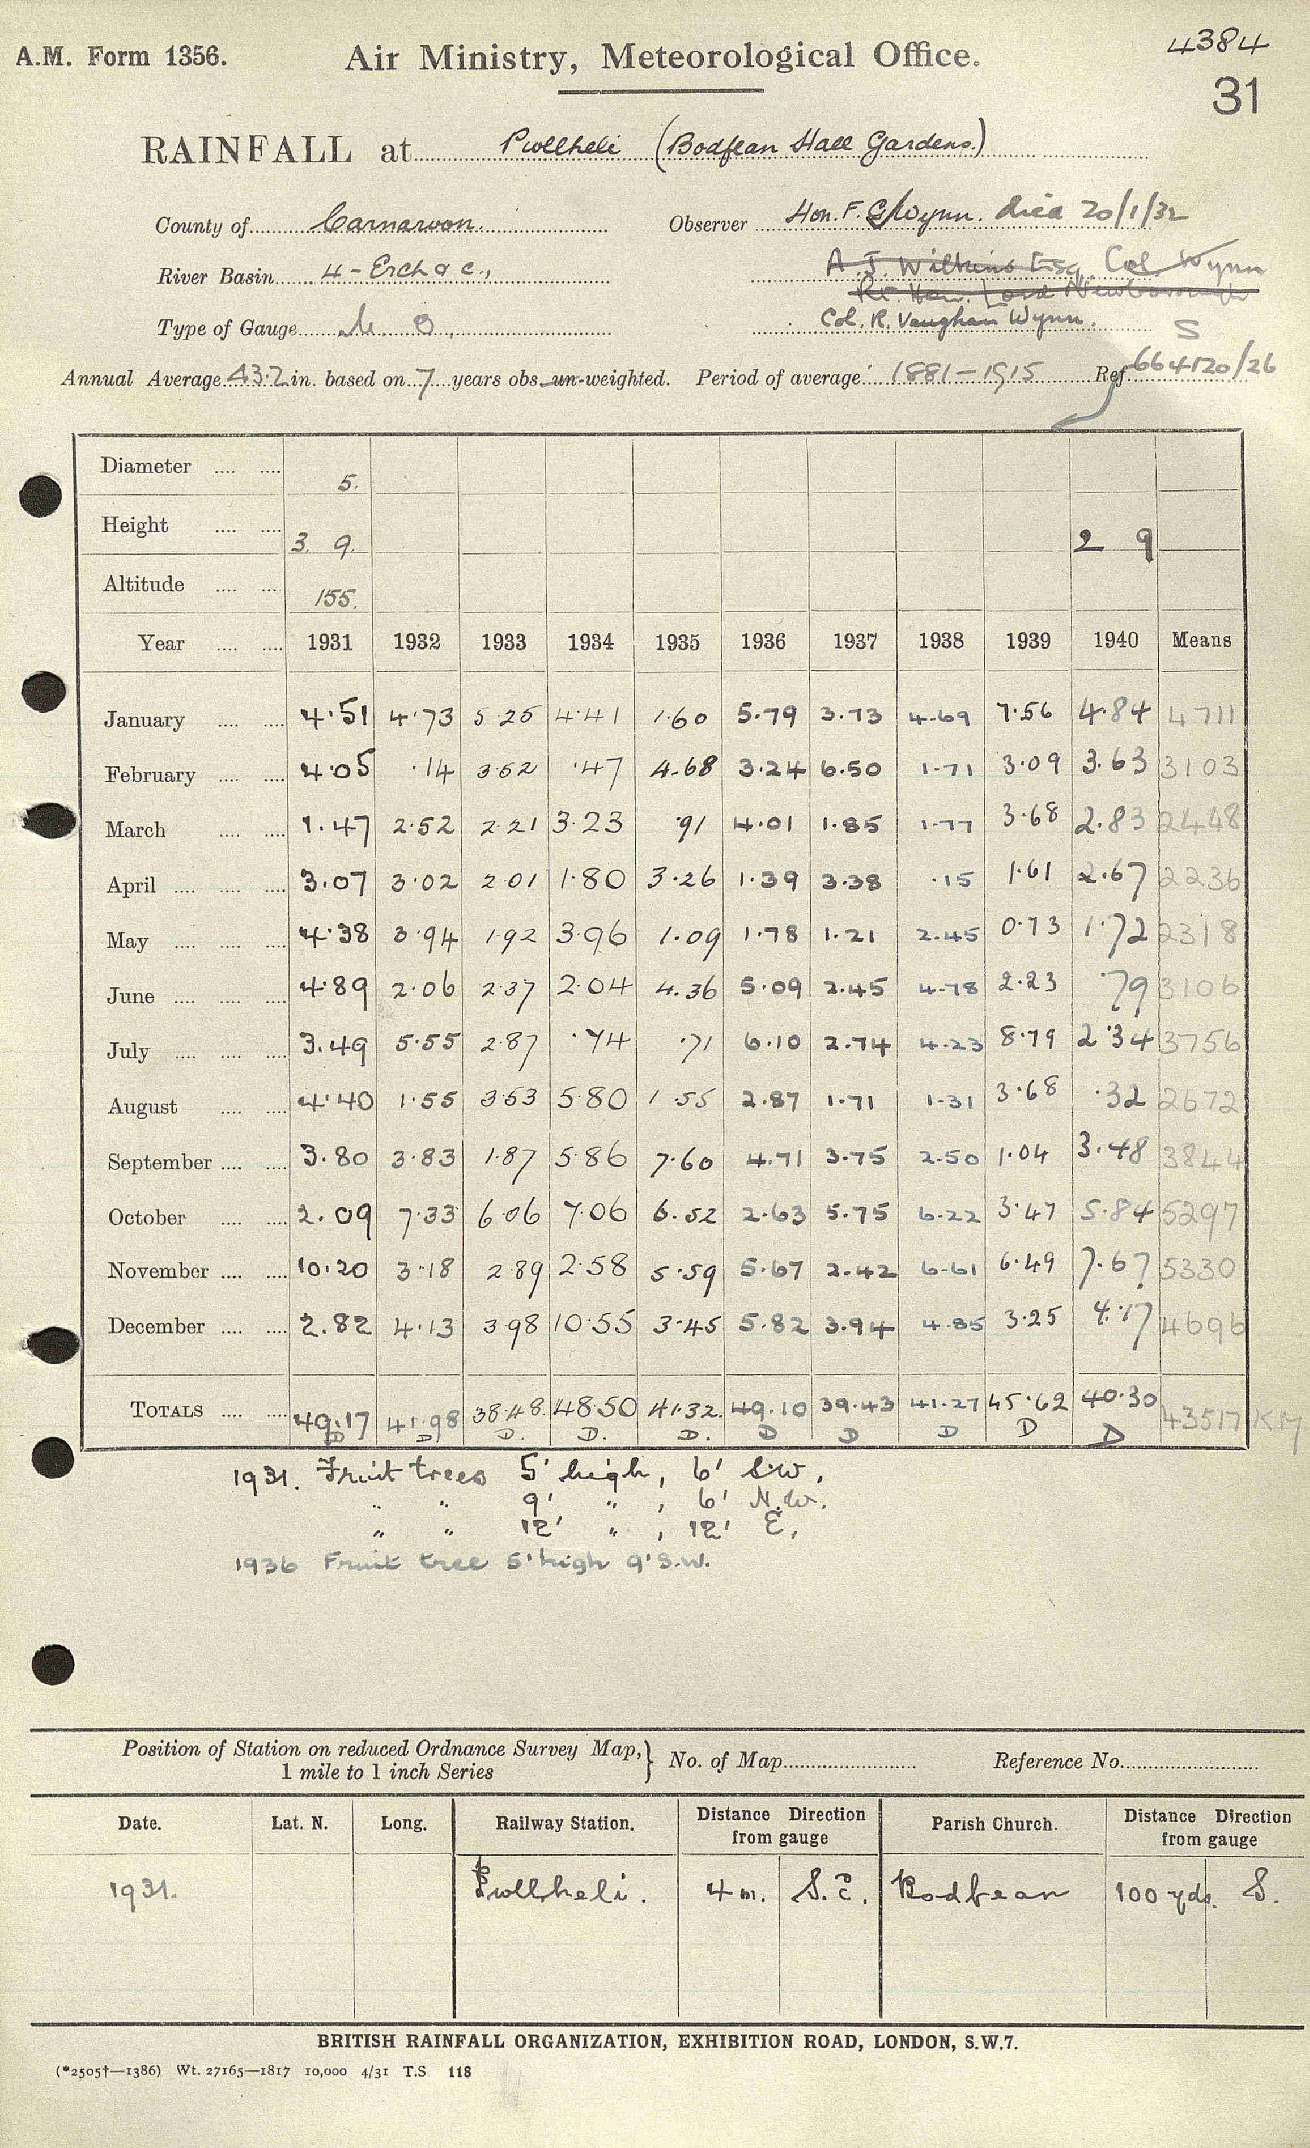 A.M. Form 1356.
Air Ministry, Meteorological Office.
4384
31
RAINFALL at Pwllheli (Bodfean Hall Gardens.)
County of Carnarvon.
Observer Hon. F. G. Wynn. died 20/1/32
River Basin 4 - Erch &c.,
A. J. Wilkins Esq. Col. Wynn
Rt Hon. Lord Newborough
Type of Gauge M. O.
Col. R. Vaughan Wynn.
S
Annual Average 43.2 in. based on 7 years obs. un-weighted. Period of average 1881-1915 Ref 664120/26
Diameter 5.
Height 3. 9. 2 9
Altitude 155.
Year 1931 1932 1933 1934 1935 1936 1937 1938 1939 1940 Means
January 4.51 4.73 5.25 4.41 1.60 5.79 3.73 4.69 7.56 4.84 4711
February 4.05 .14 3.52 .47 4.68 3.24 6.50 1.71 3.09 3.63 3103
March 1.47 2.52 2.21 3.23 .91 4.01 1.85 1.77 3.68 2.83 2448
April 3.07 3.02 2.01 1.80 3.26 1.39 3.38 .15 1.61 2.67 2236
May 4.38 3.94 1.92 3.96 1.09 1.78 1.21 2.45 0.73 1.72 2318
June 4.89 2.06 2.37 2.04 4.36 5.09 2.45 4.78 2.23 .79 3106
July 3.49 5.55 2.87 .74 .71 6.10 2.74 4.23 8.79 2.34 3756
August 4.40 1.55 3.53 5.80 1.55 2.87 1.71 1.31 3.68 .32 2672
September 3.80 3.83 1.87 5.86 7.60 4.71 3.75 2.50 1.04 3.48 3844
October 2.09 7.33 6.06 7.06 6.52 2.63 5.75 6.22 3.47 5.84 5297
November 10.20 3.18 2.89 2.58 5.59 5.67 2.42 6.61 6.49 7.67 5330
December 2.82 4.13 3.98 10.55 3.45 5.82 3.94 4.85 3.25 4.17 4696
TOTALS 49.17 41.98 38.48 48.50 41.32 49.10 39.43 41.27 45.62 40.30 43517 KM
D D D. D. D. D D D D D
1931. Fruit trees 5' high, 6' S.W,
" " 9' " , 6' N.W.
" " 12' " , 12' E,
1936 Fruit tree 5' high 9' S.W.
Position of Station on reduced Ordnance Survey Map,} No. of Map Reference No.
1 mile to 1 inch Series
Date. Lat. N. Long. Railway Station. Distance Direction from gauge Parish Church. Distance Direction from gauge
1931. Pwllheli. 4 m. S.E. Bodfean 100 yds. S.
BRITISH RAINFALL ORGANIZATION, EXHIBITION ROAD, LONDON, S.W.7.
(*2505†—1386) Wt. 27165—1817 10,000 4/31 T.S 118